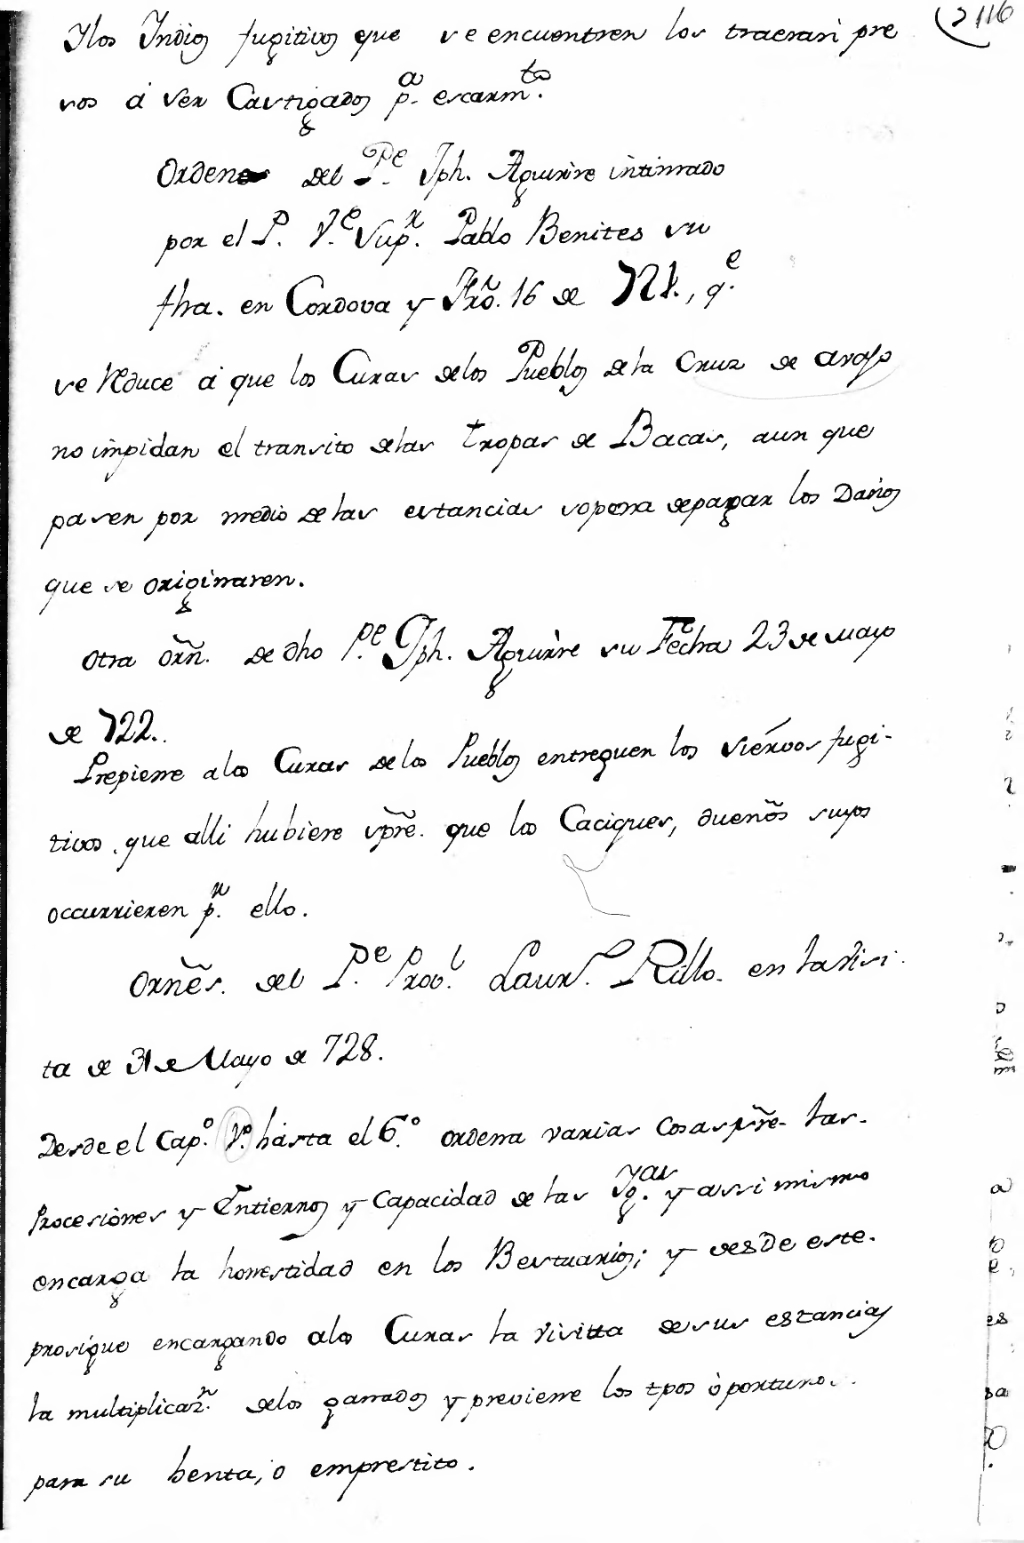 116
Ylos Indios fugitivos que se encuentren los traeran pre
sos á ser Castigados p.ª escarm.to
Ordenes del P.e Jph. Aguirre intimado
por el P. V.e Sup.r Pablo Benites su
fha. en Cordova y Hro. 16 de 721., q.e
se reduce á que los Curas delos Pueblos dela Cruz de
no impidan el transito delas tropas de Bacas, aun que
pasen por medio delas estancias so pena depagar los Daños
que se originaren.
otra orñ. de dho P.e Jph. Aguirre su Fecha 23 de mayo
de 722.
Prepiene alos Curas delos Pueblos entreguen los siervos fugi-
tivos, que alli hubiere spre. que los Caciques, dueños suyos
occurrieren p.r ello.
Orñes. del P.e Prov.l Laur.o Rillo. en la Visi
ta de 31 de Mayo de 728.
Desde el Cap.o 1.o hasta el 6.o ordena varias cosas sre. las.
Procesiones y Entierros y Capacidad de las Yg.as y assi mismo
encarga la honestidad en los Bestuarios; y desde este.
prosigue encargando alos Curas la visita de sus estancias
la multiplicaz.n delos ganados y previene los tpos oportunos.
para su benta, o emprestito.